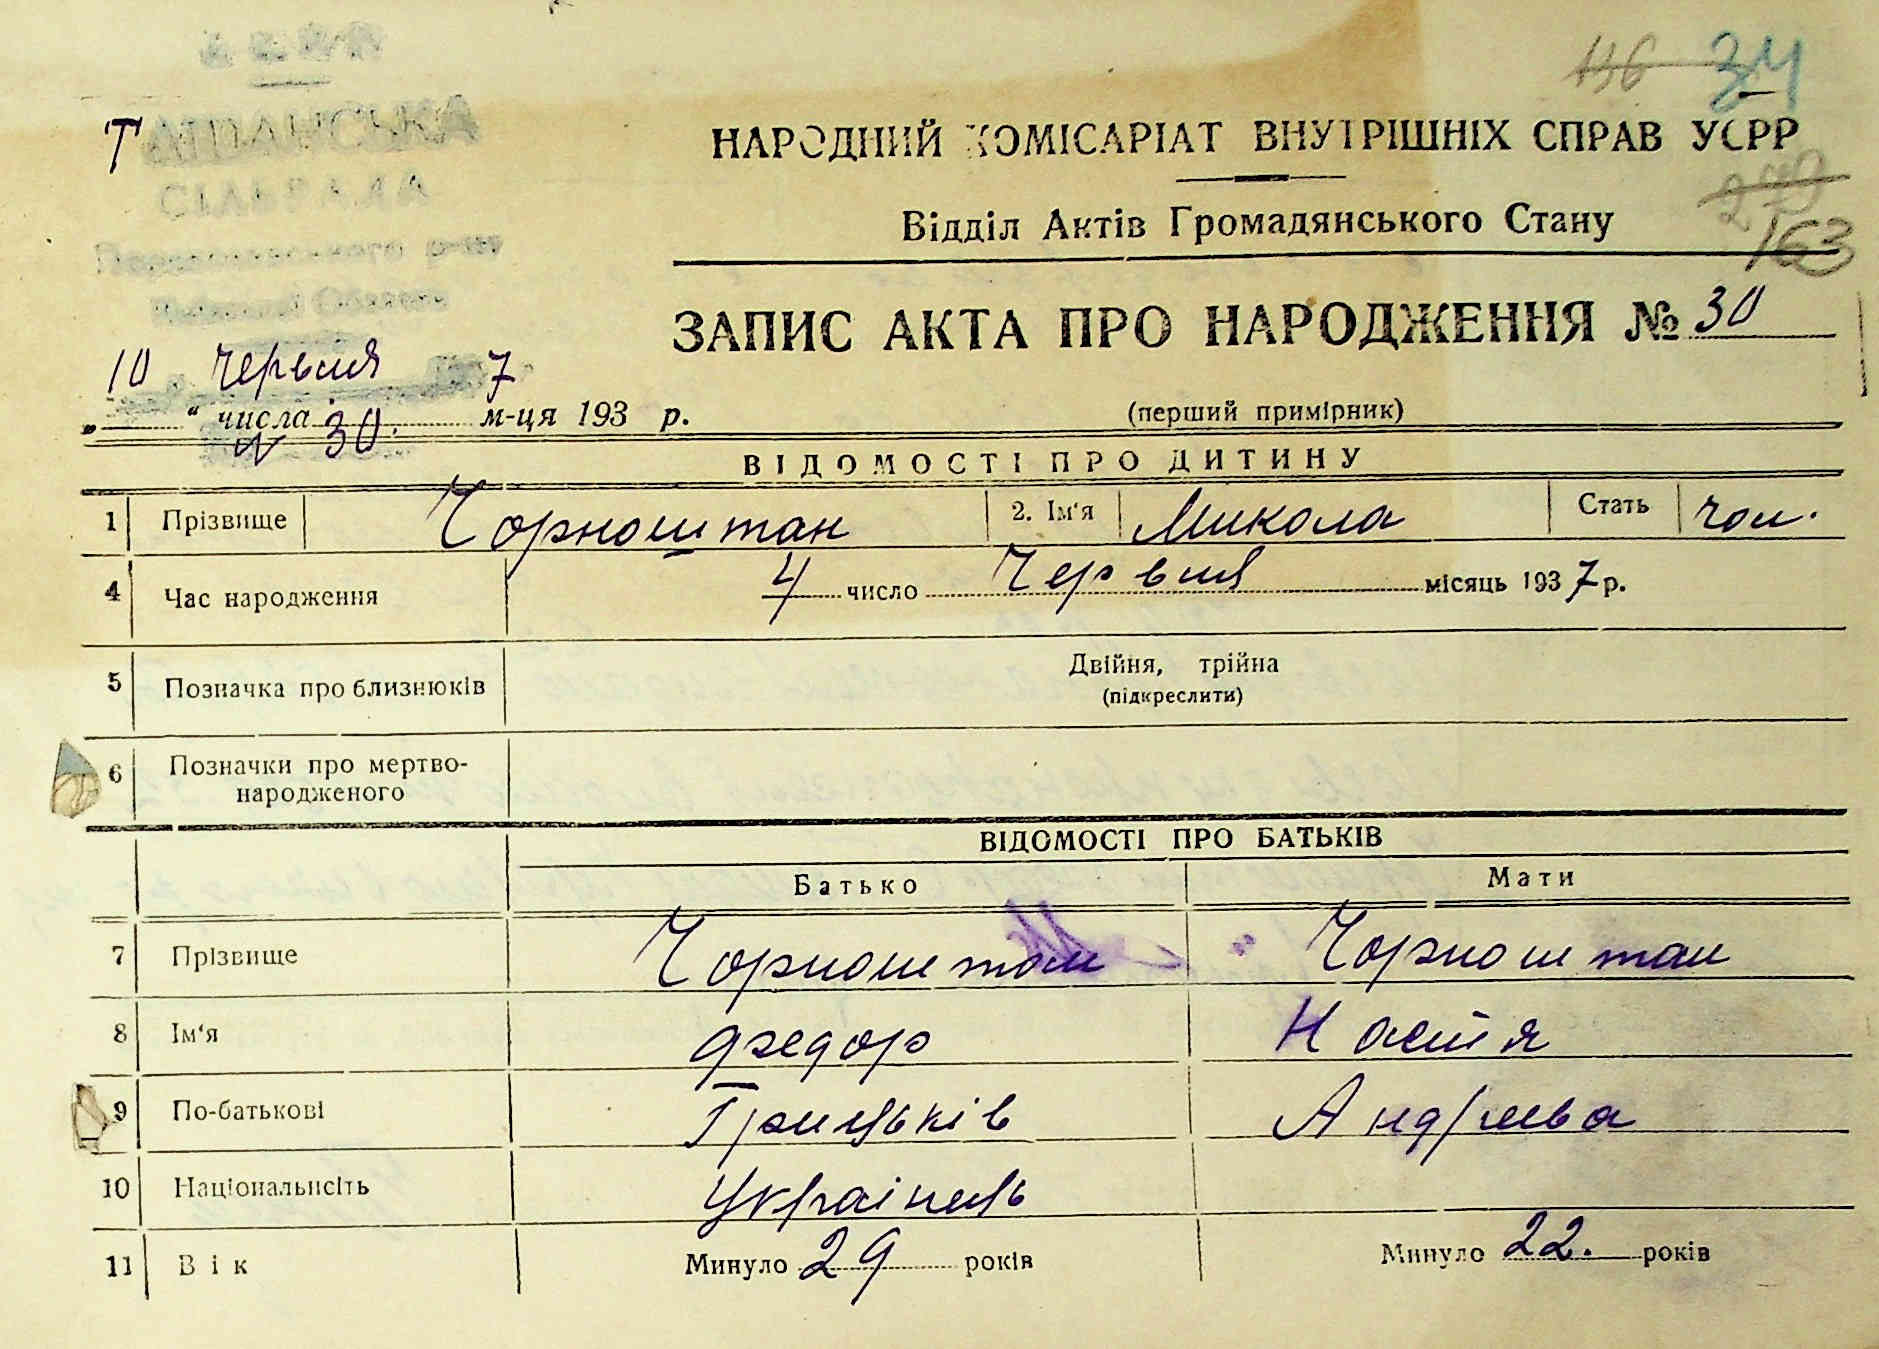 136 34
ТАШАНСЬКА
СІЛЬРАДА
НАРОДНИЙ КОМІСАРІАТ ВНУТРІШНІХ СПРАВ УСРР
Відділ Актів Громадянського Стану
163
ЗАПИС АКТА ПРО НАРОДЖЕННЯ № 30
10 червня 7
„ “ числа м-ця 193 р.
(перший примірник)
N 30.
ВІДОМОСТІ ПРО ДИТИНУ
1 Прізвище Чорноштан 2. Ім'я Микола Стать чол.
4 Час народження 4 число Червня місяць 1937 р.
5 Позначка про близнюків Двійня, трійна
(підкреслити)
6 Позначки про мертво-
народженого
ВІДОМОСТІ ПРО БАТЬКІВ
Батько Мати
7 Прізвище Чорноштан Чорноштан
8 Ім'я Федор Настя
9 По-батькові Грицьків Андріева
10 Національність Украінець
11 Вік Минуло 29 років Минуло 22. років